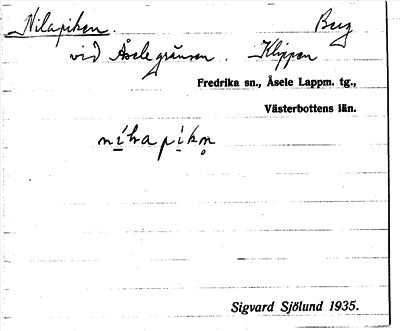 Nilapiken. Berg
vid Åselegränsen. Klippen
Fredrika sn., Åsele Lappm. tg.,
Västerbottens län.
Sigvard Sjölund 1935.